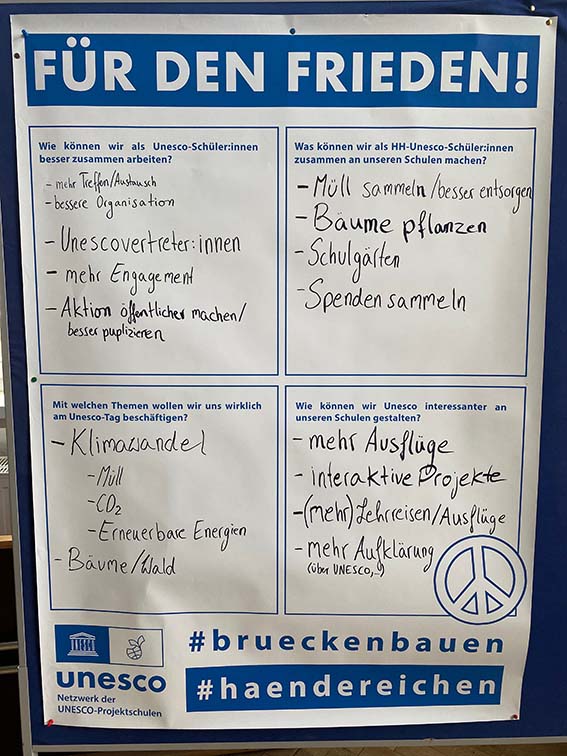 FÜR DEN FRIEDEN!
Wie können wir als Unesco-Schüler:innen
besser zusammen arbeiten?
- mehr Treffen/Austausch
- bessere Organisation
- Unescovertreter:innen
- mehr Engagement
- Aktion öffentlicher machen/
besser puplizieren
Was können wir als HH-Unesco-Schüler:innen
zusammen an unseren Schulen machen?
- Müll sammeln/besser entsorgen
- Bäume pflanzen
- Schulgärten
- Spenden sammeln
Mit welchen Themen wollen wir uns wirklich
am Unesco-Tag beschäftigen?
- Klimawandel
- Müll
- CO2
- Erneuerbare Energien
- Bäume/Wald
Wie können wir Unesco interessanter an
unseren Schulen gestalten?
- mehr Ausflüge
- interaktive Projekte
- (mehr) Lehrreisen/Ausflüge
- mehr Aufklärung
(über UNESCO,..)
#brueckenbauen
#haendereichen
unesco
Netzwerk der
UNESCO-Projektschulen